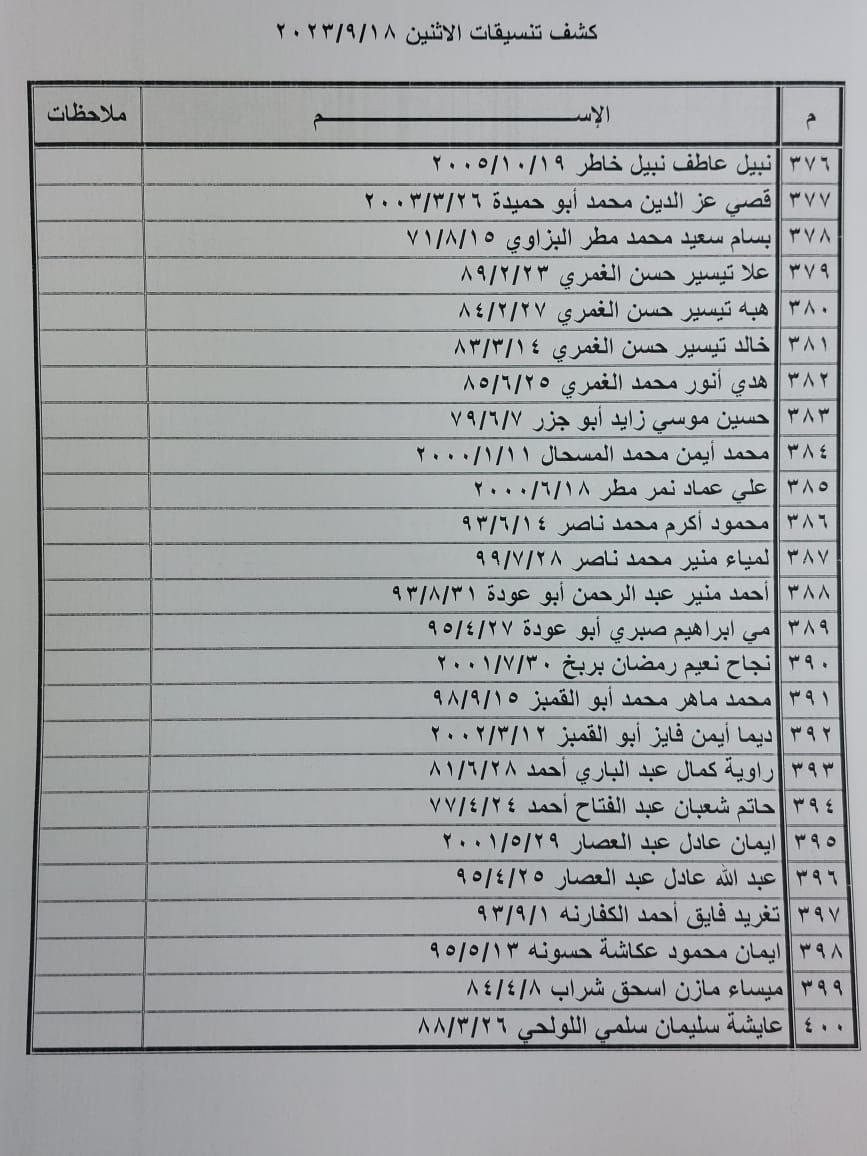 كشف تنسيقات الاثنين ٢٠٢٣/٩/١٨
م الإســـــــــــم ملاحظات
٣٧٦ نبيل عاطف نبيل خاطر ٢٠٠٥/١٠/١٩
٣٧٧ قصي عز الدين محمد أبو حميدة ٢٠٠٣/٣/٢٦
٣٧٨ بسام سعيد محمد مطر البزاوي ٧١/٨/١٥
٣٧٩ علا تيسير حسن الغمري ٨٩/٢/٢٣
٣٨٠ هبه تيسير حسن الغمري ٨٤/٢/٢٧
٣٨١ خالد تيسير حسن الغمري ٨٣/٣/١٤
٣٨٢ هدي أنور محمد الغمري ٨٥/٦/٢٥
٣٨٣ حسين موسي زايد أبو جزر ٧٩/٦/٧
٣٨٤ محمد أيمن محمد المسحال ٢٠٠٠/١/١١
٣٨٥ علي عماد نمر مطر ٢٠٠٠/٦/١٨
٣٨٦ محمود أكرم محمد ناصر ٩٣/٦/١٤
٣٨٧ لمياء منير محمد ناصر ٩٩/٧/٢٨
٣٨٨ أحمد منير عبد الرحمن أبو عودة ٩٣/٨/٣١
٣٨٩ مي ابراهيم صبري أبو عودة ٩٥/٤/٢٧
٣٩٠ نجاح نعيم رمضان بربخ ٢٠٠١/٧/٣٠
٣٩١ محمد ماهر محمد أبو القمبز ٩٨/٩/١٥
٣٩٢ ديما أيمن فايز أبو القمبز ٢٠٠٢/٣/١٢
٣٩٣ راوية كمال عبد الباري أحمد ٨١/٦/٢٨
٣٩٤ حاتم شعبان عبد الفتاح أحمد ٧٧/٤/٢٤
٣٩٥ ايمان عادل عبد العصار ٢٠٠١/٥/٢٩
٣٩٦ عبد الله عادل عبد العصار ٩٥/٤/٢٥
٣٩٧ تغريد فايق أحمد الكفارنه ٩٣/٩/١
٣٩٨ ايمان محمود عكاشة حسونه ٩٥/٥/١٣
٣٩٩ ميساء مازن اسحق شراب ٨٤/٤/٨
٤٠٠ عايشة سليمان سلمي اللولحي ٨٨/٣/٢٦